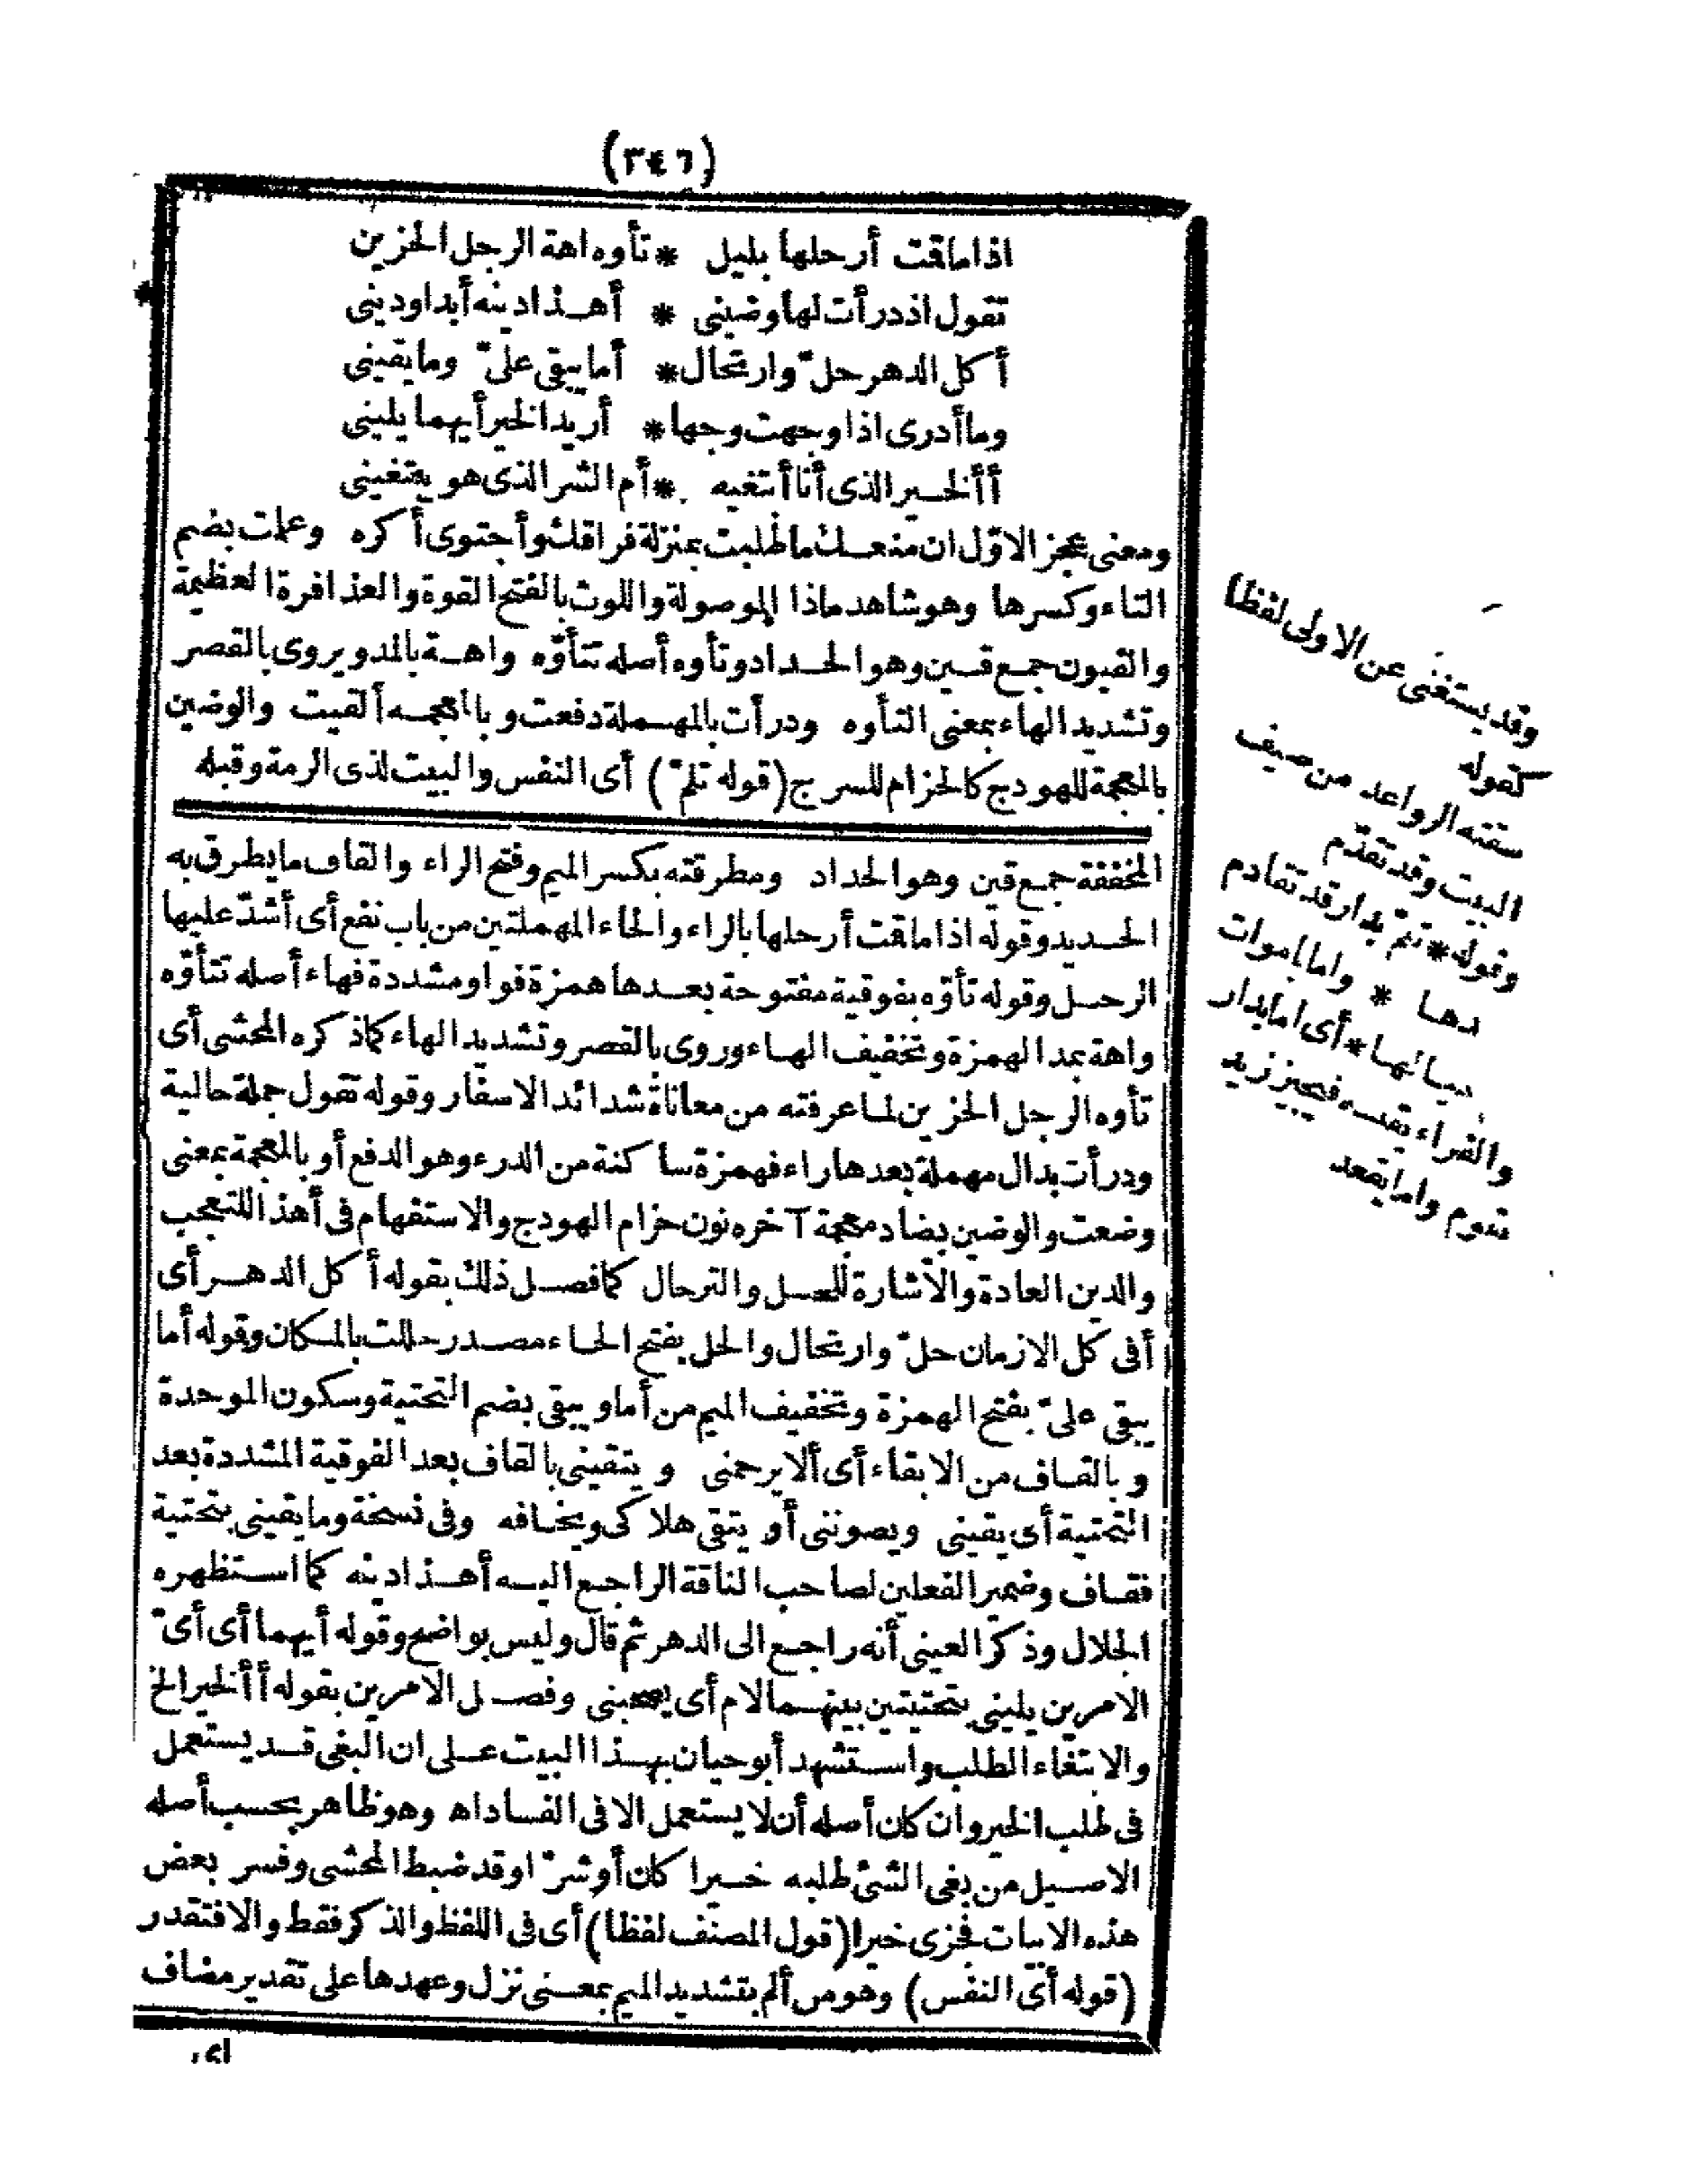 (٣٤٦)
اذا ماقت أرحلها بليل * تأوه اهة الرجل الحزين
تقول اذدرأت لها وضيني * أهـذا دينه أبدا وديني
أكل الدهر حلّ وارتحال * أما يبقى علىّ وما يقيني
وما أدرى اذا وجهت وجها * أريد الخير أيهما يليني
أألخـير الذى أنا أبتغيه * أم الشر الذى هو يبتغيني
ومعنى عجز الاوّل ان منعـك ما طلبت بمنزلة فراقك وأجتوى أكره وعلمت بضم
التاء وكسرها وهو شاهد ماذا الموصولة واللوث بالفتح القوة والعذافرة العظيمة
والقيون جمـع قـين وهو الحـداد وتأوه أصله تتأوّه واهـة بالمد ويروى بالقصر
وتشديد الهاء بمعنى التأوه ودرأت بالمهـملة دفعت وبالمعجمـه ألقيت والوضين
بالمعجمة للهودج كالحزام للسرج (قوله تلمّ) أى النفس والبيت لذى الرمة وقبله
المخففة جمـع قين وهو الحداد ومطرقته بكسر الميم وفتح الراء والقاف ما يطرق به
الحـديد وقوله اذا ماقت أرحلها بالراء والحاء المهملتين من باب نفع أى أشدّ عليها
الرحـل وقوله تأوّه بفوقية مفتوحة بعـدها همزة فواو مشددة فهاء أصله تتأوّه
واهة بمد الهمزة وتخفيف الهـاء وروى بالقصر وتشديد الهاء كما ذكره المحشى أى
تأوه الرجل الحزين لمـا عرفته من معاناة شدائد الاسفار وقوله تقول جملة حالية
ودرأت بدال مهملة بعدها راء فهمزة ساكنة من الدرء وهو الدفع أو بالمعجمة بمعنى
وضعت والوضين بضاد معجمة آخره نون حزام الهودج والاستفهام فى أهذا للتعجب
والدين العادة والاشارة للحـل والترحال كما فصـل ذلك بقوله أكل الدهـر أى
أفى كل الازمان حلّ وارتحال والحل بفتح الحـاء مصـدر حللت بالمـكان وقوله أما
يبقى علىّ بفتح الهمزة وتخفيف الميم من أما ويبقى بضم التحتية وسكون الموحدة
وبالقـاف من الابقاء أى ألا يرحمنى ويتقينى بالقاف بعد الفوقية المشددة بعد
التحتية أى يقينى ويصوننى أو يتقى هلاكى ويخـافه وفى نسخة وما يقينى بتحتية
فقـاف وضمير الفعلين لصاحب الناقة الراجـع اليـه أهـذا دينه كما اسـتظهره
الجلال وذكر العينى أنه راجـع الى الدهر ثم قال وليس بواضح وقوله أيهـما أى أىّ
الامرين يلينى بتحتيتين بينهـما لام أى يصحبنى وفصـل الامرين بقوله أألخير الخ
والابتغاء الطلب واسـتشهد أبو حيان بهـذا البيت عـلى ان البغى قـد يستعمل
فى طلب الخير وان كان أصله أن لا يستعمل الا فى الفساد اه وهو ظاهر بحسب أصله
الاصـيل من بغى الشئ طلبه خـيرا كان أو شرّا وقد ضبط المحشى وفسر بعض
هذه الابيات فجزى خيرا (قول المصنف لفظا) أى فى اللفظ والذكر فقط والا فتقدر
(قوله أى النفس) وهو من ألم بتشديد الميم بمعـنى نزل وعهدها على تقدير مضاف
وقد يستغنى عن الاولى لفظا
كقوله
سقته الرواعد من صيف
البيت وقد تقدّم
وقوله * تلمّ بدار قد تقادم
دها * واما باموات
يالها * أى اما بدار
والفراء يقيسه فيجيز زيد
يقوم واما يقعد